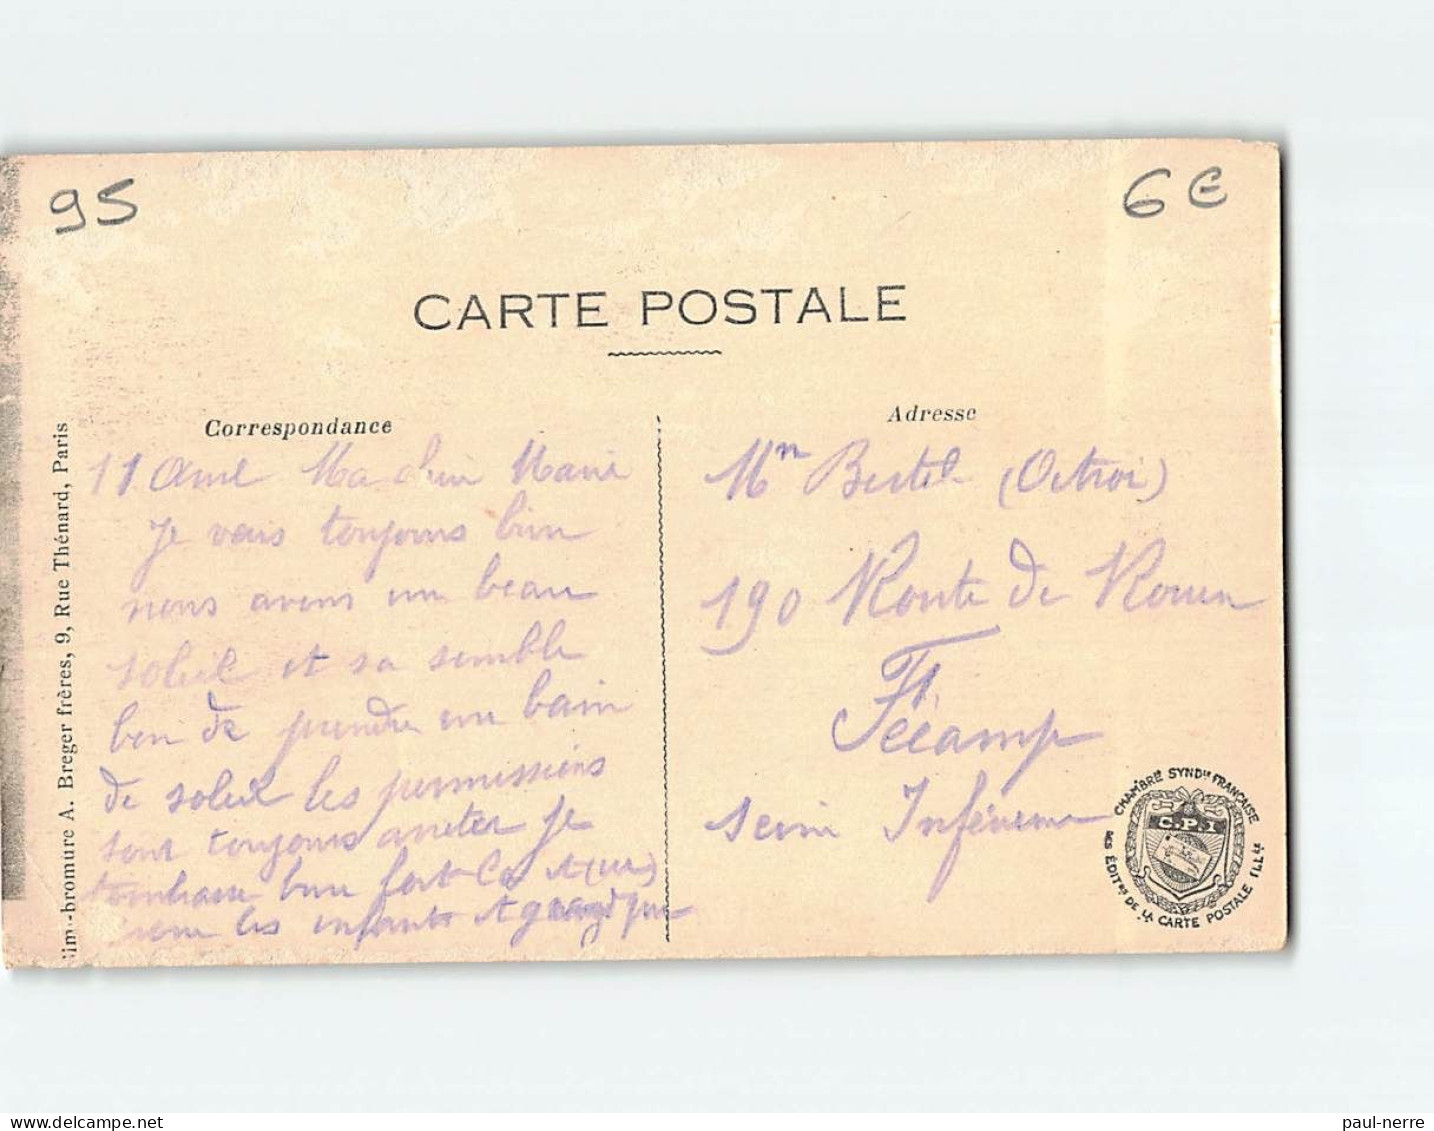 95
6 €
CARTE POSTALE
Correspondance
Adresse
11 Avril Ma chère Marie
Je vais toujours bien
nous avons un beau
soleil et sa semble
bon de prendre un bain
de soleil les permissions
sont toujours arreter je
bien fort
les enfants et
Mn Bertel (Octroi)
190 Route de Rouen
Fécamp
Seine Inférieure
-bromure A. Breger frères, 9, Rue Thénard, Paris
CHAMBRE SYNDle FRANÇAISE
C.P.I
DES ÉDITrs DE LA CARTE POSTALE ILLée
paul-nerre